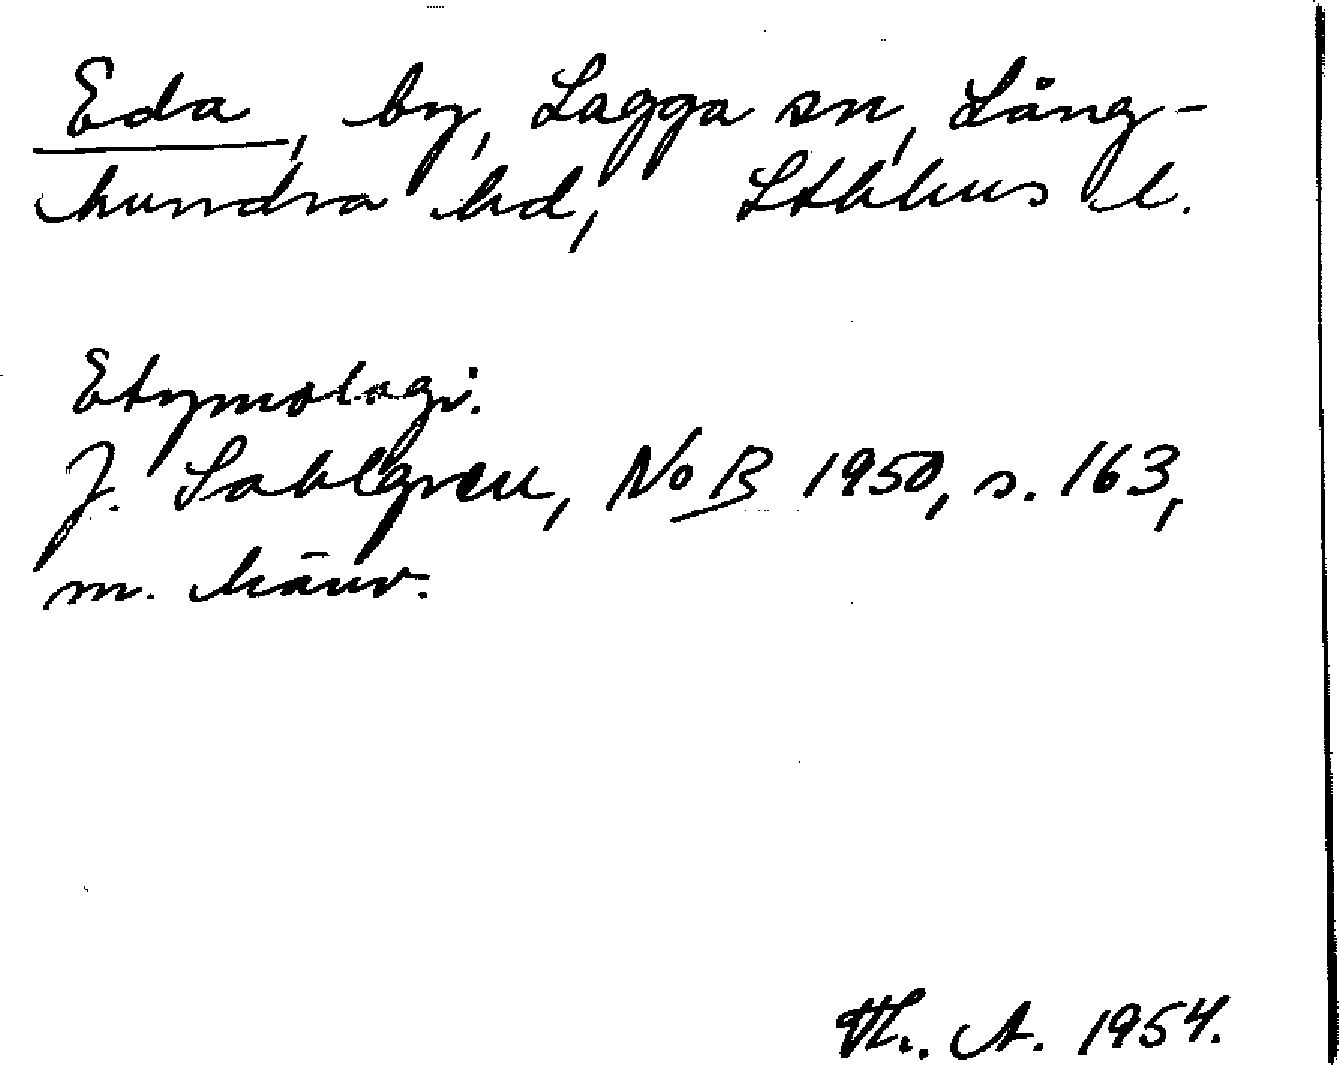 Eda, by, Lagga sn, Lång-
hundra hd, Sthlms l.
Etymologi.
J. Sahlgren, NoB 1950, s. 163,
m. hänv.
Th. A. 1954.